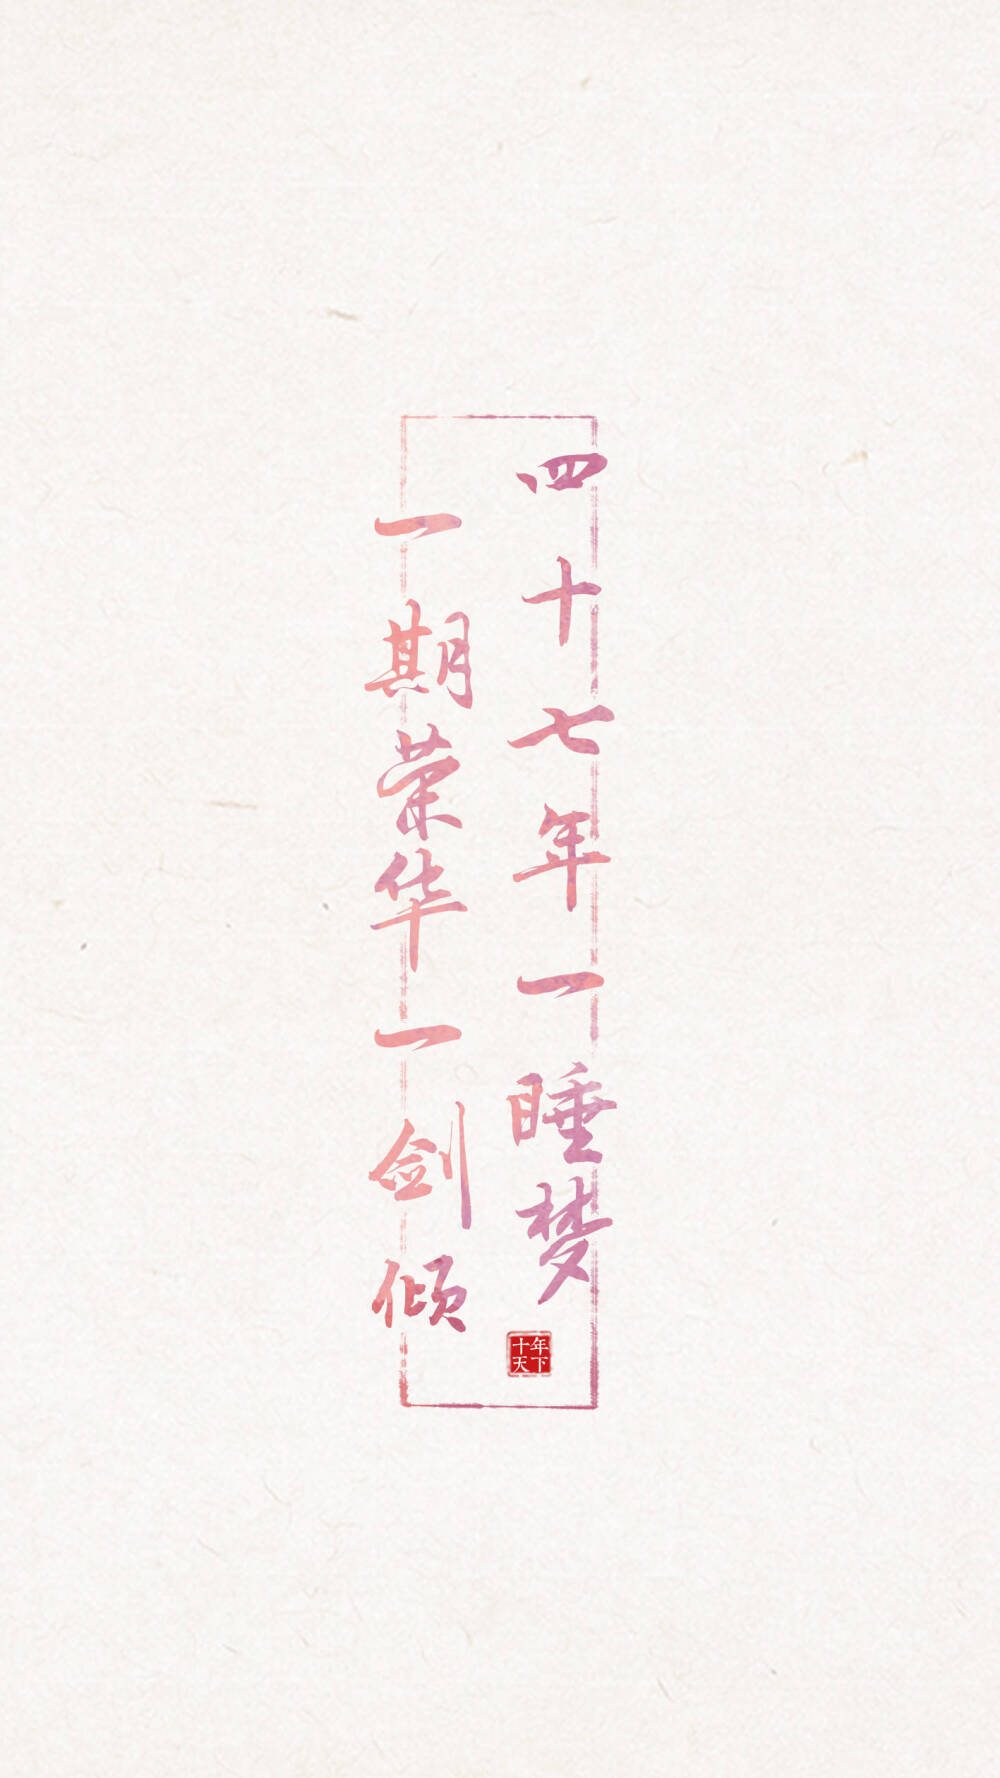 四十七年一睡梦
一期荣华一剑倾
十年
天下